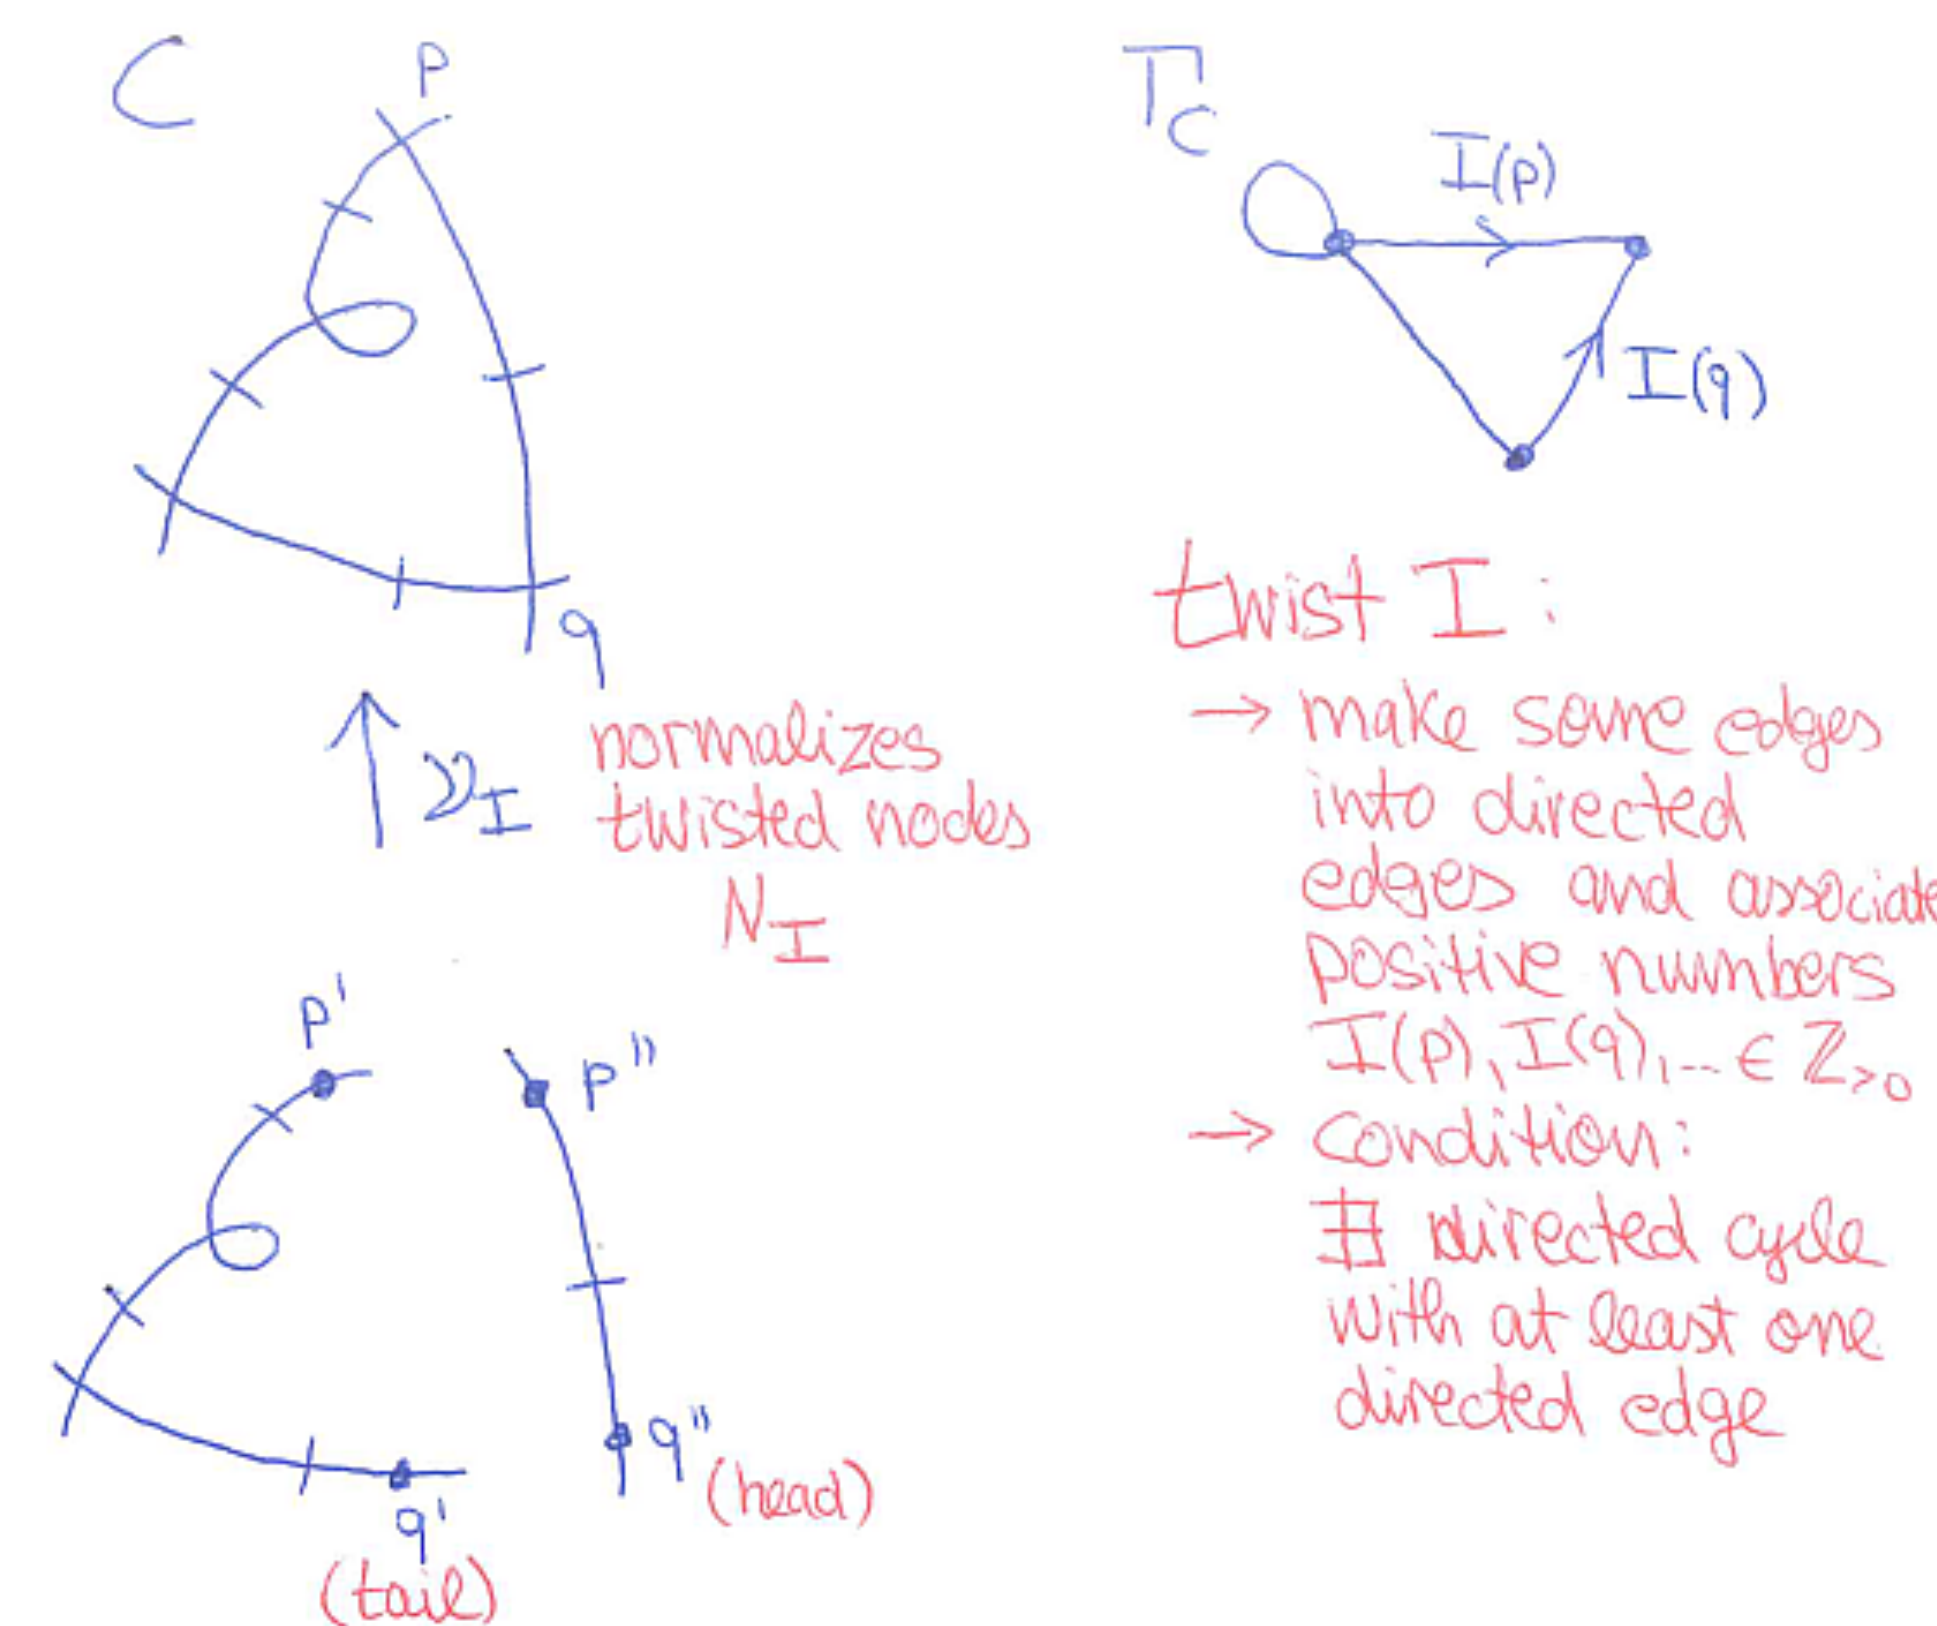 C
p
q
ν_I
normalizes
twisted nodes
N_I
p'
p"
q"
(head)
q'
(tail)
Γ_C
I(p)
I(q)
twist I:
→ make some edges
into directed
edges and associate
positive numbers
I(p), I(q),... ∈ ℤ_{>0}
→ condition:
∄ directed cycle
with at least one
directed edge